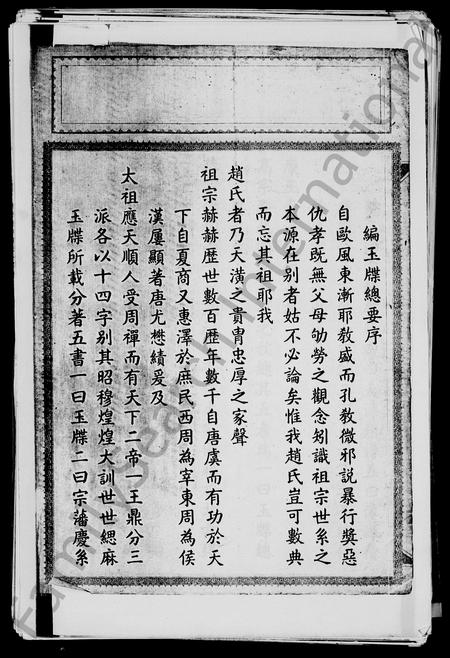 編玉牒總要序
自歐風東漸耶敎盛而孔敎微邪說暴行獎惡
仇孝旣無父母劬勞之觀念矧識祖宗世系之
本源在別者姑不必論矣惟我趙氏豈可數典
而忘其祖耶我
趙氏者乃天潢之貴胄忠厚之家聲
祖宗赫赫歷世數百歷年數千自唐虞而有功於天
下自夏商又惠澤於庶民西周為宰東周為侯
漢屢顯著唐尤懋績爰及
太祖應天順人受周禪而有天下二帝一王鼎分三
派各以十四字別其昭穆煌煌大訓世世緦麻
玉牒所載分著五書一曰玉牒二曰宗藩慶系
FamilySearch International